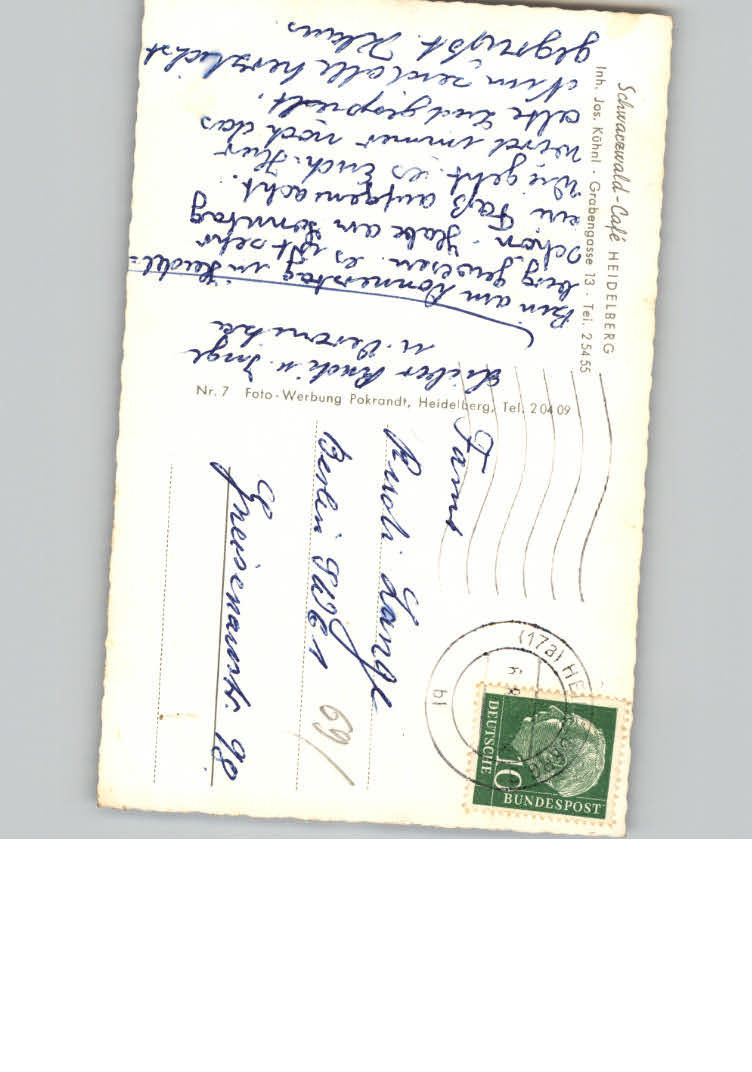 Schwarzwald-Café HEIDELBERG
Inh. Jos. Kühnl · Grabengasse 13 · Tel. 2 54 55
Lieber Rudi u. Inge
u. Veronika
Bin am Donnerstag in Heidel=
berg gewesen. es ist sehr
schön. Habe am Sonntag
ein Faß aufgemacht.
Wie geht es Euch. Hier
wird immer noch das
alte Lied gespielt.
Nun seid alle herzlichst
gegrüßt. Klaus.
Nr. 7 Foto-Werbung Pokrandt, Heidelberg, Tel. 2 04 09
Fam.
Rudi Lange
Berlin SW 61
69/
Gneisenaustr. 98
(17a) HEI
bl
DEUTSCHE
10
BUNDESPOST